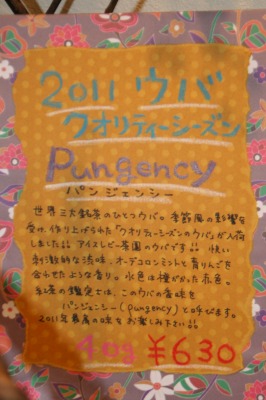 2011 ウバ
クオリティーシーズン
Pungency
パンジェンシー
世界三大銘茶のひとつウバ。季節風の影響を
受け、作り上げられた「クオリティーシーズンのウバ」が入荷
しました!! アイスレビー茶園のウバです!! 快い
刺激的な渋味、オーデコロンミントと青りんごを
合わせたような香り。水色は橙がかった赤色。
紅茶の鑑定では、このウバの香味を
パンジェンシー(pungency)と呼びます。
2011年最高の味をお楽しみ下さい!!
40g ¥630